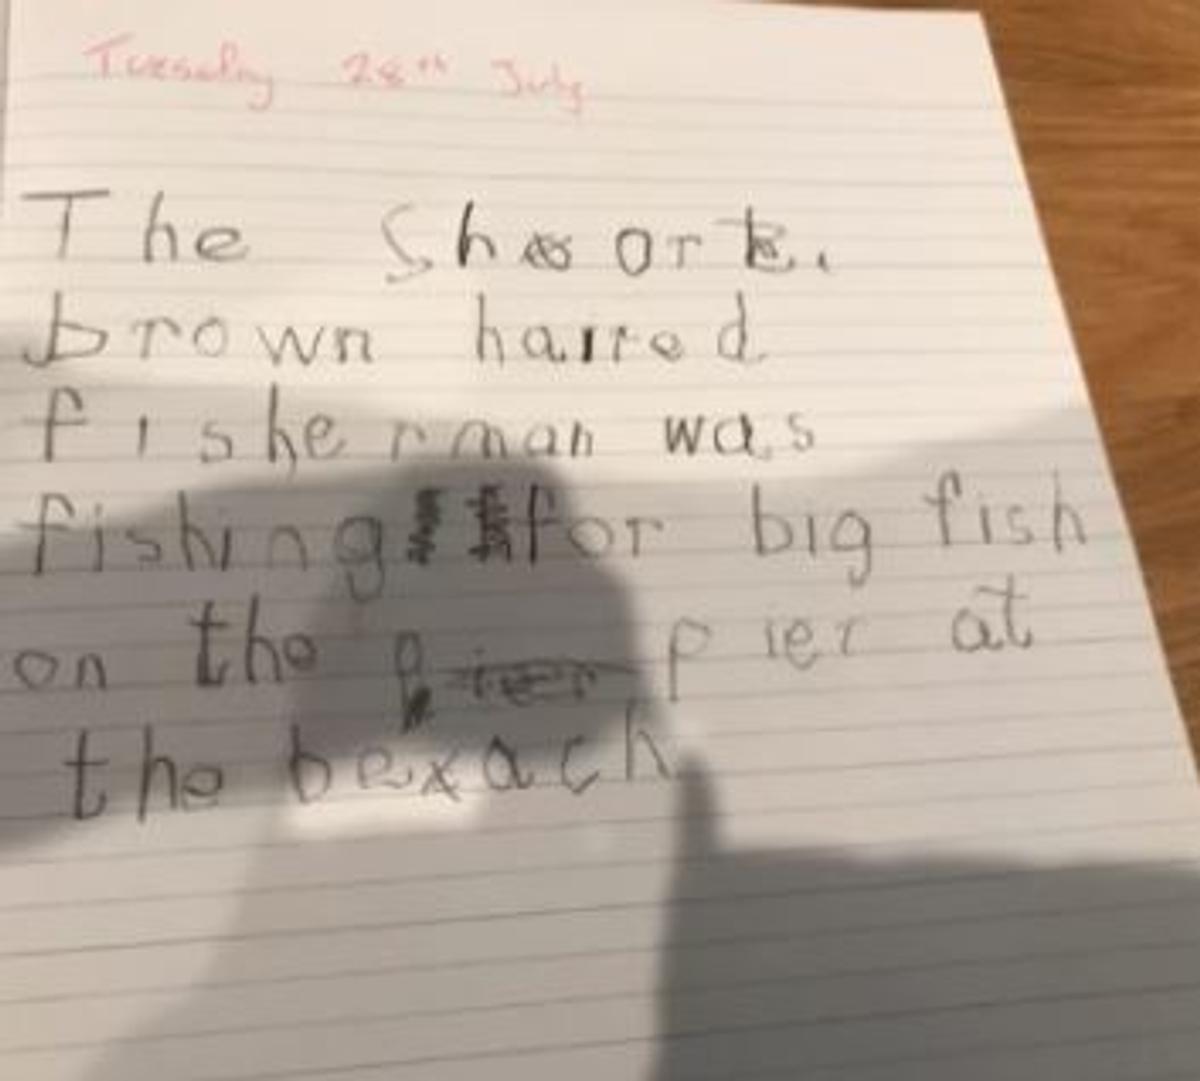 Tuesday 28th July
The Short,
brown haired
fisherman was
fishing for big fish
on the pier at
the beach